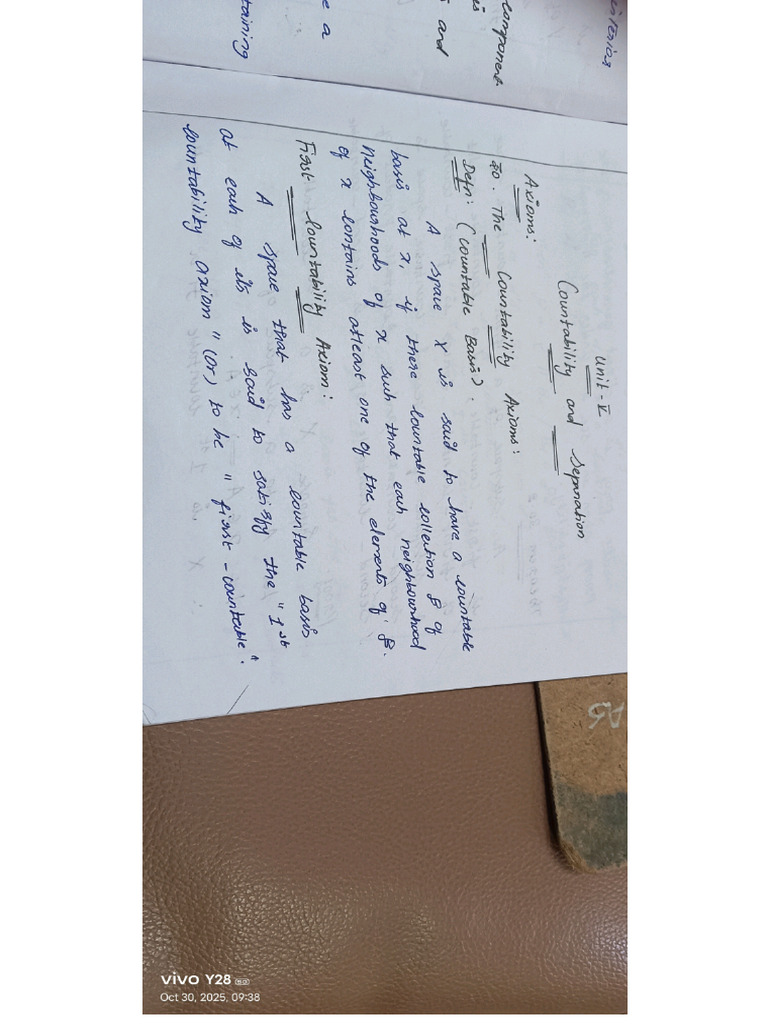 isterior
component
is
and
e a
taining
Unit - V
Countability and Separation
Axioms:
30. The Countability Axioms:
Defn: (Countable Basis).
A space X is said to have a countable
basis at x, if there countable collection B of
neighbourhoods of x such that each neighbourhood
of x contains atleast one of the elements of B.
First Countability Axiom:
A space that has a countable basis
at each of its is said to satisfy the "1st
countability axiom" (or) to be "first - countable".
A5
vivo Y28 5G
Oct 30, 2025, 09:38